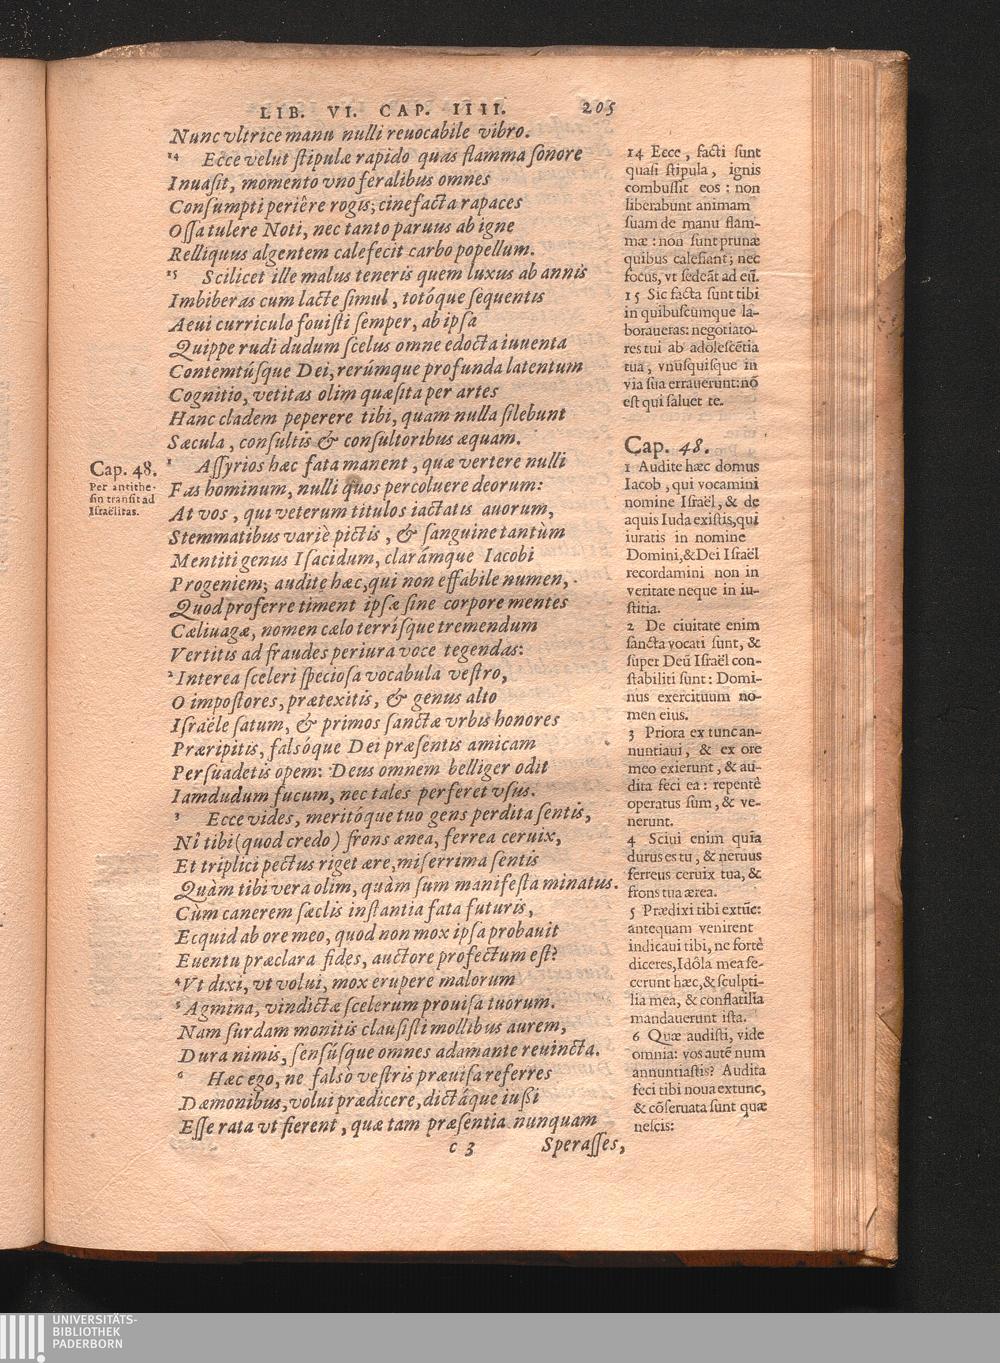 LIB. VI. CAP. IIII. 205
Nunc vltrice manu nulli reuocabile vibro.
14 Ecce velut stipulæ rapido quas flamma sonore
Inuasit, momento vno feralibus omnes
Consumpti periêre rogis; cinefacta rapaces
Ossa tulere Noti, nec tanto paruus ab igne
Relliquus algentem calefecit carbo popellum.
15 Scilicet ille malus teneris quem luxus ab annis
Imbiberas cum lacte simul, totóque sequentis
Aeui curriculo fouisti semper, ab ipsa
Quippe rudi dudum scelus omne edocta iuuenta
Contemtúsque Dei, rerúmque profunda latentum
Cognitio, vetitas olim quæsita per artes
Hanc cladem peperere tibi, quam nulla silebunt
Sæcula, consultis & consultoribus æquam.
1 Assyrios hæc fata manent, quæ vertere nulli
Fas hominum, nulli quos percoluere deorum:
At vos, qui veterum titulos iactatis auorum,
Stemmatibus variè pictis, & sanguine tantùm
Mentiti genus Isacidum, clarámque Iacobi
Progeniem; audite hæc, qui non effabile numen,
Quod proferre timent ipsæ sine corpore mentes
Cæliuagæ, nomen cælo terrisque tremendum
Vertitis ad fraudes periura voce tegendas:
2 Interea sceleri speciosa vocabula vestro,
O impostores, prætexitis, & genus alto
Israële satum, & primos sanctæ vrbis honores
Præripitis, falsóque Dei præsentis amicam
Persuadetis opem: Deus omnem belliger odit
Iamdudum fucum, nec tales perferet vsus.
3 Ecce vides, meritóque tuo gens perdita sentis,
Nî tibi (quod credo) frons ænea, ferrea ceruix,
Et triplici pectus riget ære, miserrima sentis
Quàm tibi vera olim, quàm sum manifesta minatus.
Cùm canerem sæclis instantia fata futuris,
Ecquid ab ore meo, quod non mox ipsa probauit
Euentu præclara fides, auctore profectum est?
4 Vt dixi, vt volui, mox erupere malorum
5 Agmina, vindictæ scelerum prouisa tuorum.
Nam surdam monitis clausisti mollibus aurem,
Dura nimis, sensúsque omnes adamante reuincta.
6 Hæc ego, ne falsò vestris præuisa referres
Dæmonibus, volui prædicere, dictáque iussi
Esse rata vt fierent, quæ tam præsentia nunquam
c 3 Sperasses,
Cap. 48.
Per antithe-
sin transit ad
Israëlitas.
14 Ecce, facti sunt
quasi stipula, ignis
combussit eos: non
liberabunt animam
suam de manu flam-
mæ: non sunt prunæ
quibus calefiant; nec
focus, vt sedeãt ad eũ.
15 Sic facta sunt tibi
in quibuscumque la-
boraueras: negotiato-
res tui ab adolescẽtia
tua, vnusquisque in
via sua errauerunt: nõ
est qui saluet te.
Cap. 48.
1 Audite hæc domus
Iacob, qui vocamini
nomine Israël, & de
aquis Iuda existis, qui
iuratis in nomine
Domini, & Dei Israël
recordamini non in
veritate neque in iu-
stitia.
2 De ciuitate enim
sancta vocati sunt, &
super Deũ Israël con-
stabiliti sunt: Domi-
nus exercituum no-
men eius.
3 Priora ex tunc an-
nuntiaui, & ex ore
meo exierunt, & au-
dita feci ea: repentè
operatus sum, & ve-
nerunt.
4 Sciui enim quia
durus es tu, & neruus
ferreus ceruix tua, &
frons tua ærea.
5 Prædixi tibi extũc:
antequam venirent
indicaui tibi, ne fortè
diceres, Idôla mea fe-
cerunt hæc, & sculpti-
lia mea, & conflatilia
mandauerunt ista.
6 Quæ audisti, vide
omnia: vos autẽ num
annuntiastis? Audita
feci tibi noua extunc,
& cõseruata sunt quæ
nescis:
UNIVERSITÄTS-
BIBLIOTHEK
PADERBORN